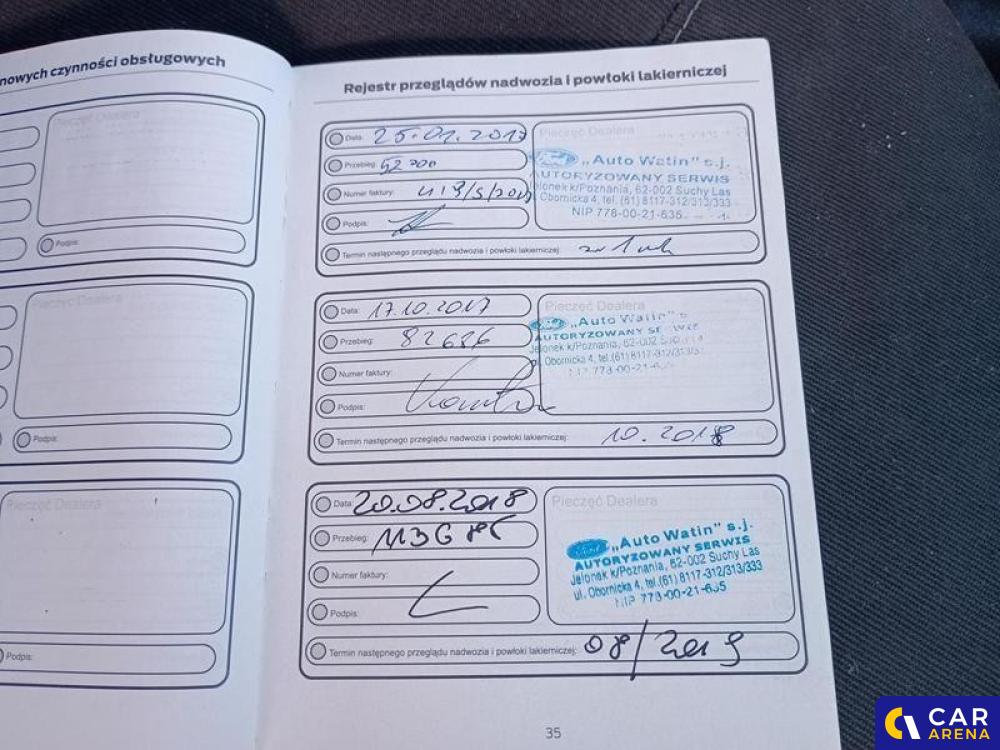 nowych czynności obsługowych
Pieczęć Dealera
Podpis:
Pieczęć Dealera
Podpis:
Pieczęć Dealera
Podpis:
Rejestr przeglądów nadwozia i powłoki lakierniczej
Data: 25.01.2017
Przebieg: 52700
Numer faktury:
Podpis:
Termin następnego przeglądu nadwozia i powłoki lakierniczej:
Pieczęć Dealera
Ford „Auto Watin" s.j.
AUTORYZOWANY SERWIS
Jelonek k/Poznania, 62-002 Suchy Las
ul. Obornicka 4, tel. (61) 8117-312/313/333
NIP 778-00-21-635
Data: 17.10.2017
Przebieg: 82686
Numer faktury:
Podpis:
Termin następnego przeglądu nadwozia i powłoki lakierniczej: 10.2018
Pieczęć Dealera
Ford „Auto Watin" s
AUTORYZOWANY SERWIS
Jelonek k/Poznania, 62-002
ul. Obornicka 4, tel. (61) 8117-312/313/
NIP 778-00-21-635
Data: 20.08.2018
Przebieg:
Numer faktury:
Podpis:
Termin następnego przeglądu nadwozia i powłoki lakierniczej: 08/2019
Pieczęć Dealera
Ford „Auto Watin" s.j.
AUTORYZOWANY SERWIS
Jelonek k/Poznania, 62-002 Suchy Las
ul. Obornicka 4, tel. (61) 8117-312/313/333
NIP 778-00-21-635
35
CAR
ARENA